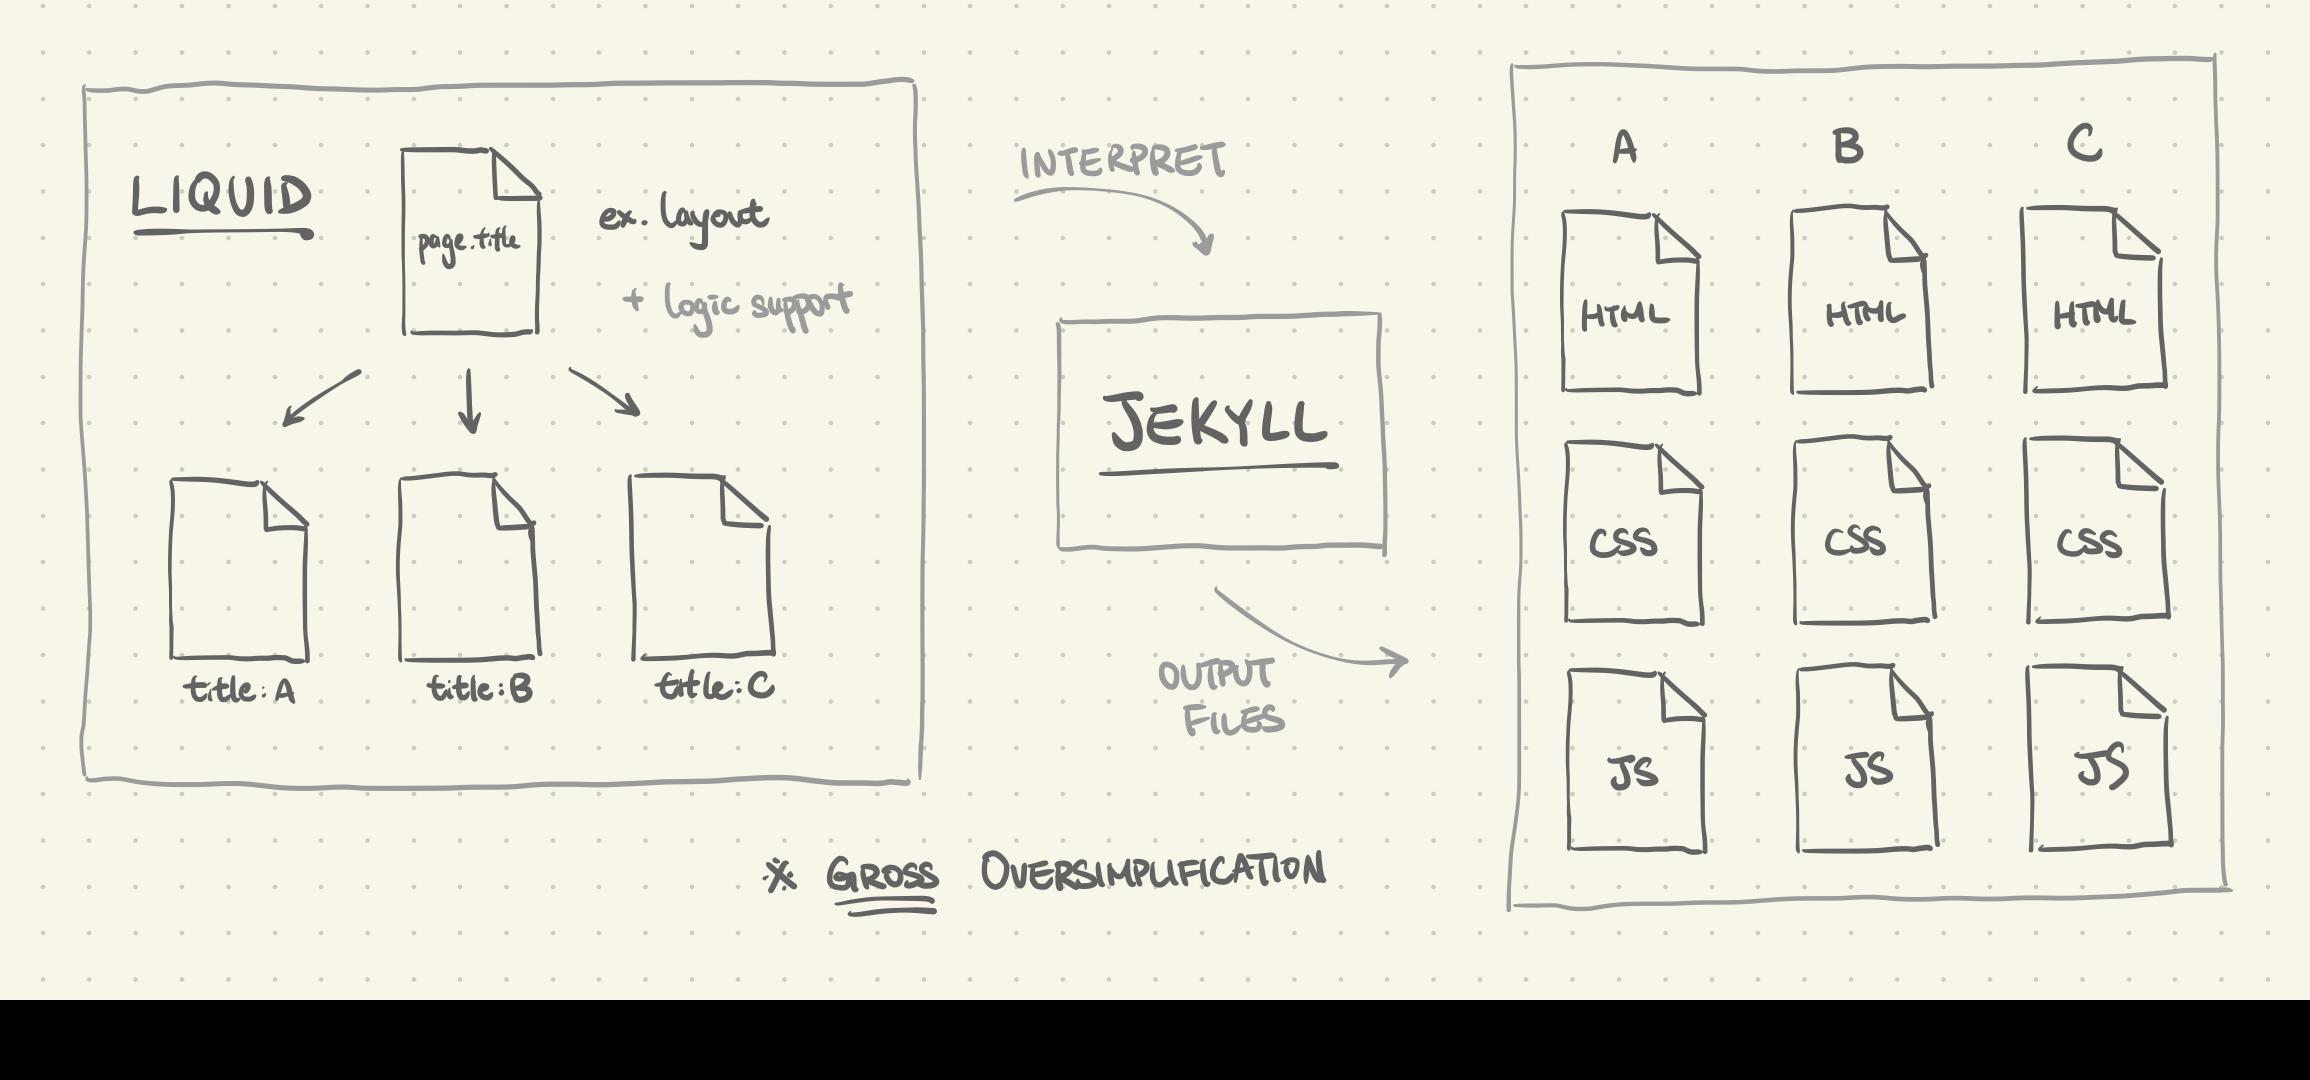 LIQUID
page.title
ex. layout
+ logic support
title: A
title: B
title: C
INTERPRET
JEKYLL
OUTPUT
FILES
A B C
HTML HTML HTML
CSS CSS CSS
JS JS JS
※ GROSS OVERSIMPLIFICATION